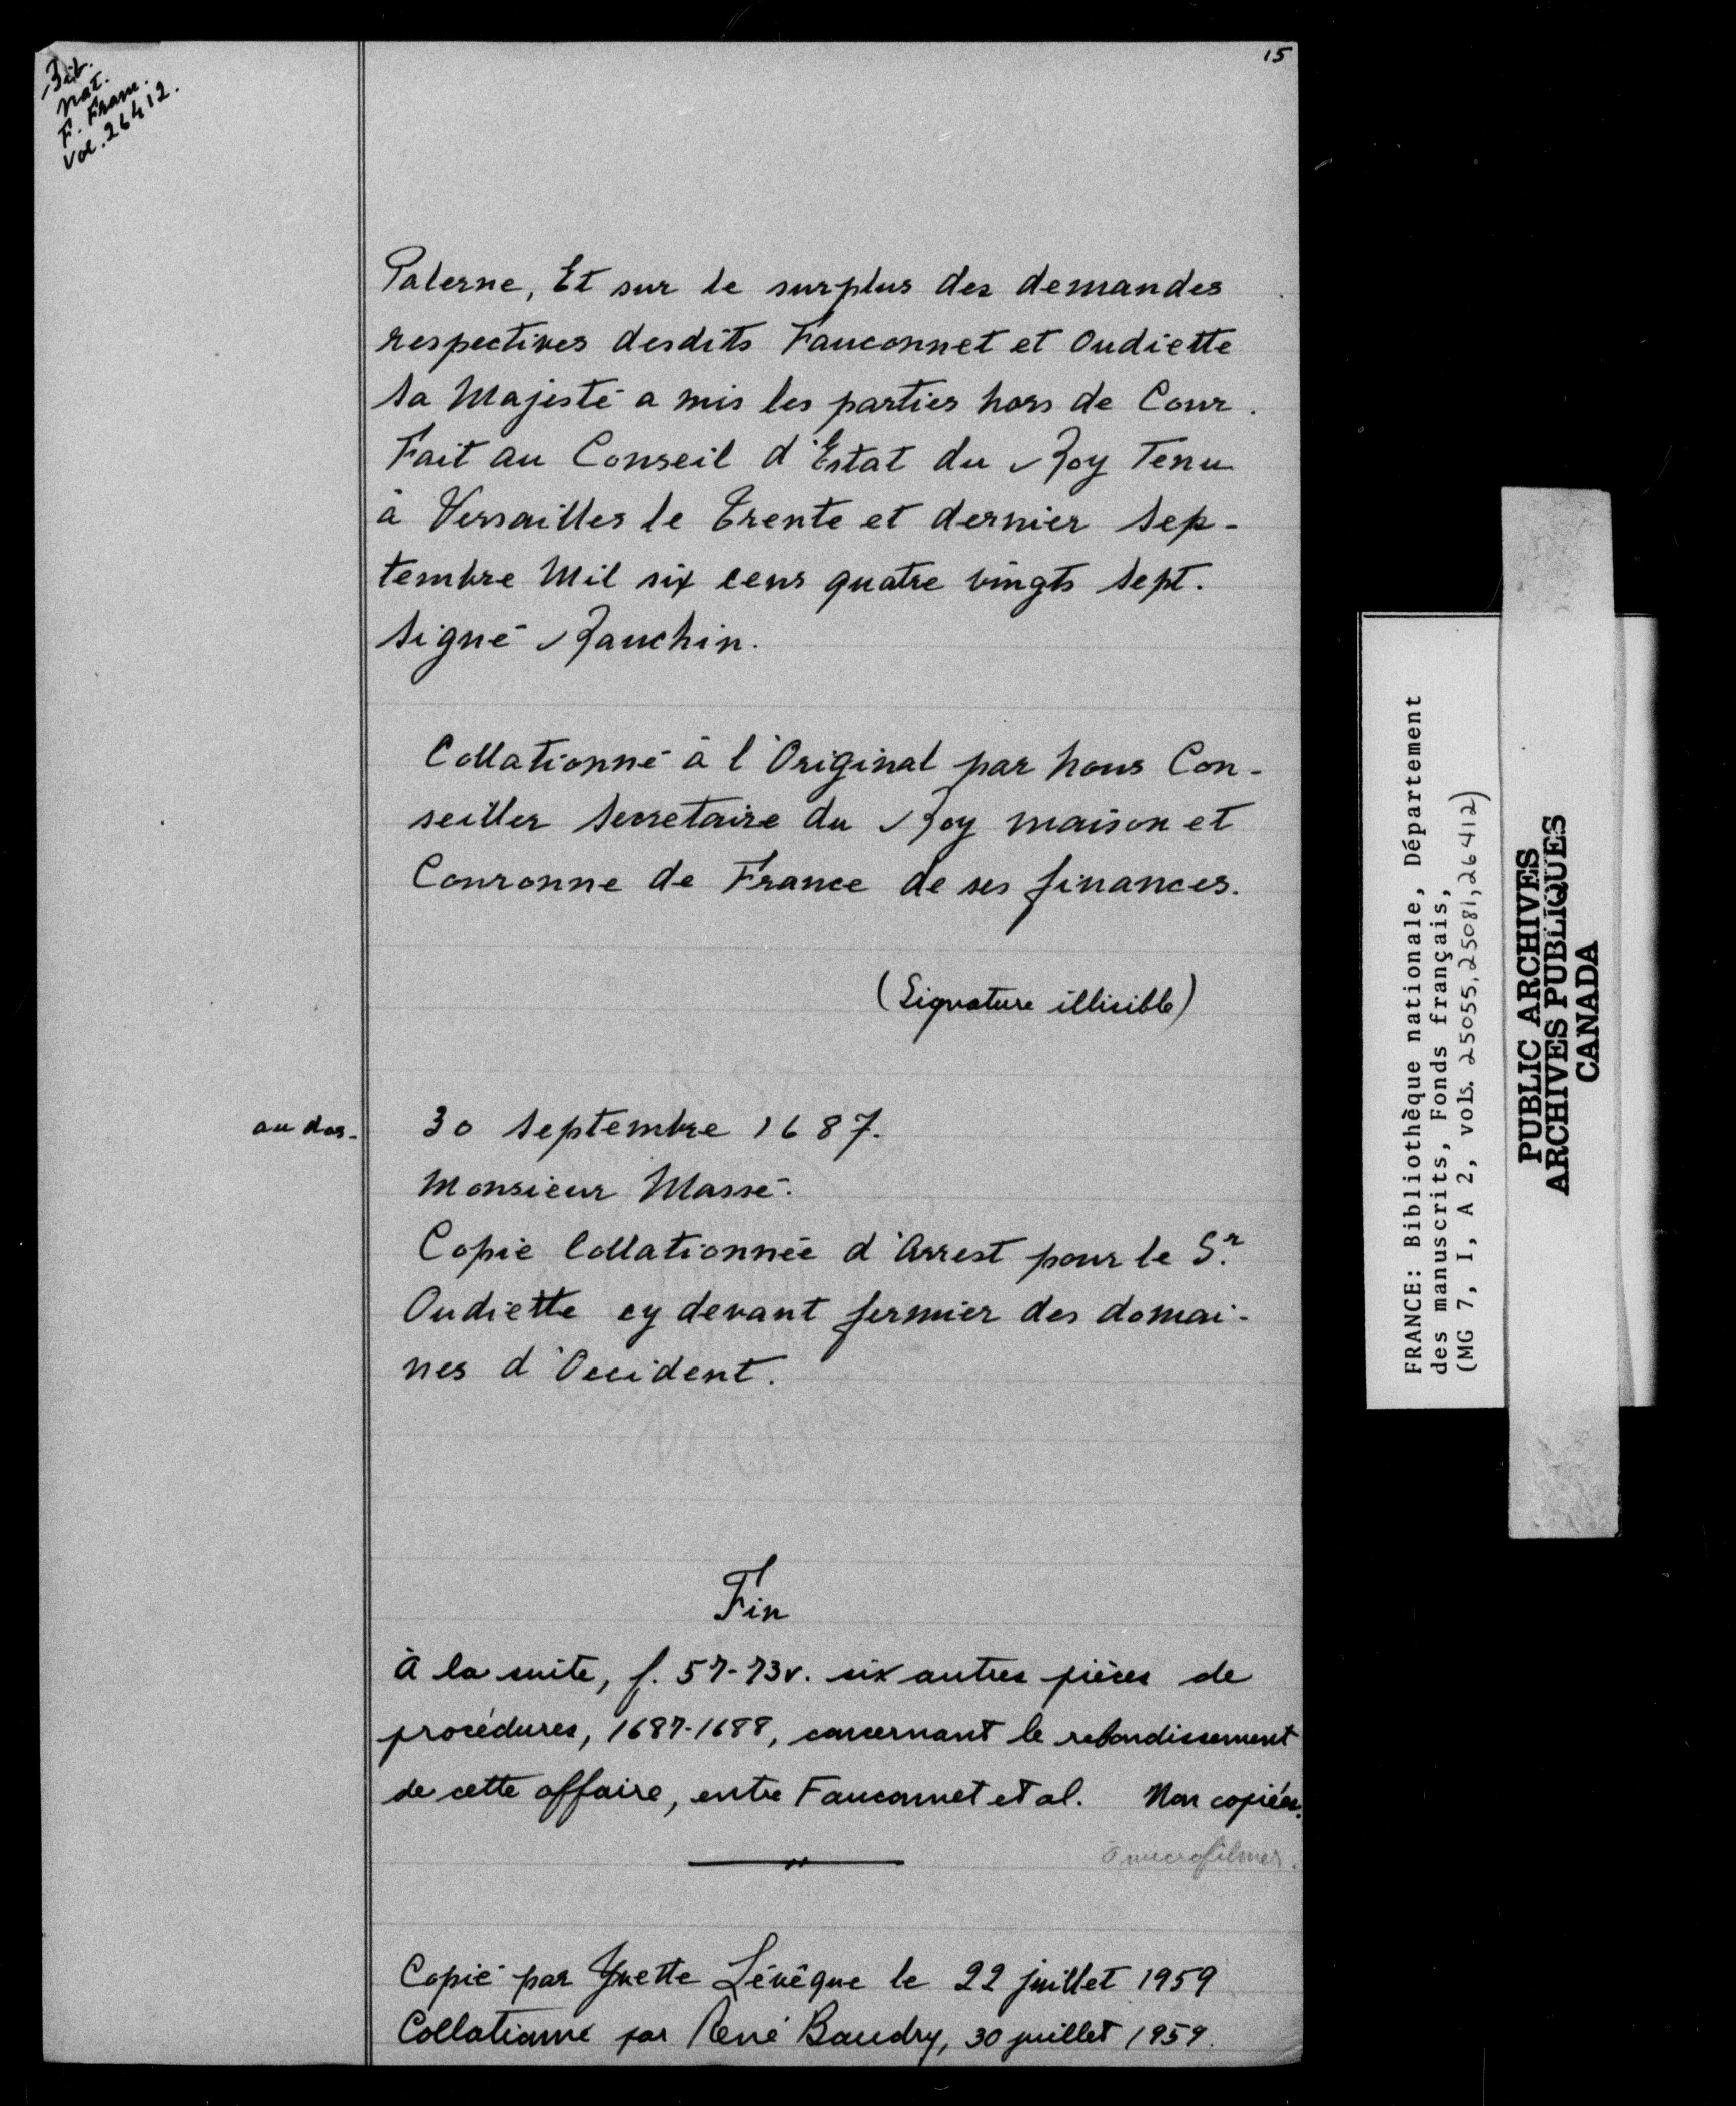 15
Bib.
nat.
F. Franc.
Vol. 26412.
Palerne, Et sur le surplus des demandes
respectives desdits Fauconnet et Oudiette
Sa Majesté a mis les parties hors de Cour.
Fait au Conseil d'Estat du Roy Tenu
à Versailles le Trente et dernier Sep-
tembre Mil six cens quatre vingts Sept.
Signé Ranchin.
Collationné à l'Original par Nous Con-
seiller Secretaire du Roy maison et
Couronne de France de ses finances.
(Signature illisible)
au dos-
30 Septembre 1687.
Monsieur Massé.
Copie Collationnée d'Arrest pour le Sr.
Oudiette cy devant fermier des domai-
nes d'Occident.
Fin
À la suite, f. 57-73v. six autres pièces de
procédures, 1687-1688, concernant le rebondissement
de cette affaire, entre Fauconnet et al. Non copiées.
à microfilmer.
Copié par Yvette Lévêque le 22 juillet 1959
Collationné par René Baudry, 30 juillet 1959.
FRANCE: Bibliothèque nationale, Département
des manuscrits, Fonds français,
(MG 7, I, A 2, vols. 25055, 25081, 26412)
PUBLIC ARCHIVES
ARCHIVES PUBLIQUES
CANADA